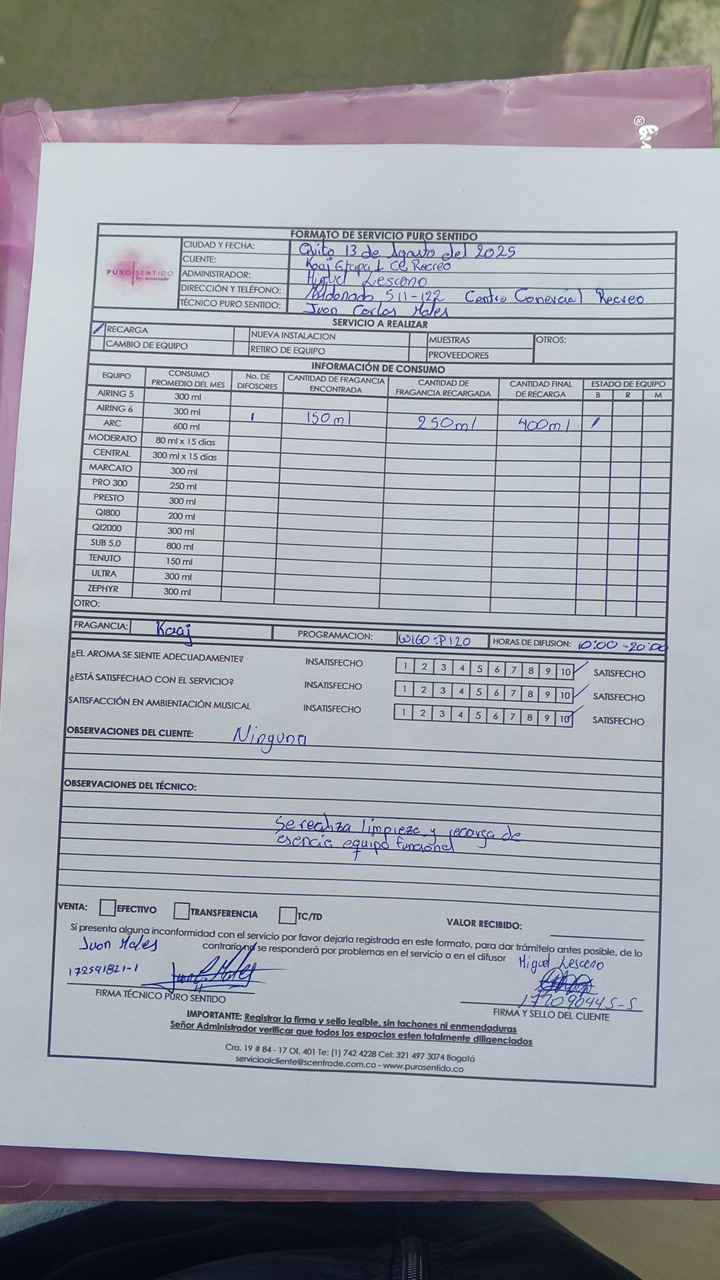 FORMATO DE SERVICIO PURO SENTIDO
PURO SENTIDO
CIUDAD Y FECHA: Quito 13 de Agosto del 2025
CLIENTE: Kaaj Etapa 1 CC Recreo
ADMINISTRADOR: Miguel Lescano
DIRECCIÓN Y TELÉFONO: Maldonado S11-122 Centro Comercial Recreo
TÉCNICO PURO SENTIDO: Juan Carlos Males
SERVICIO A REALIZAR
RECARGA NUEVA INSTALACION MUESTRAS OTROS:
CAMBIO DE EQUIPO RETIRO DE EQUIPO PROVEEDORES
INFORMACIÓN DE CONSUMO
EQUIPO CONSUMO PROMEDIO DEL MES No. DE DIFOSORES CANTIDAD DE FRAGANCIA ENCONTRADA CANTIDAD DE FRAGANCIA RECARGADA CANTIDAD FINAL DE RECARGA ESTADO DE EQUIPO
B R M
AIRING 5 300 ml
AIRING 6 300 ml
ARC 600 ml 1 150ml 250ml 400ml /
MODERATO 80 ml x 15 días
CENTRAL 300 ml x 15 días
MARCATO 300 ml
PRO 300 250 ml
PRESTO 300 ml
QI800 200 ml
QI2000 300 ml
SUB 5.0 800 ml
TENUTO 150 ml
ULTRA 300 ml
ZEPHYR 300 ml
OTRO:
FRAGANCIA: Kaaj PROGRAMACION: W160-P120 HORAS DE DIFUSIÓN: 10:00-20:00
¿EL AROMA SE SIENTE ADECUADAMENTE? INSATISFECHO 1 2 3 4 5 6 7 8 9 10 SATISFECHO
¿ESTÁ SATISFECHAO CON EL SERVICIO? INSATISFECHO 1 2 3 4 5 6 7 8 9 10 SATISFECHO
SATISFACCIÓN EN AMBIENTACIÓN MUSICAL INSATISFECHO 1 2 3 4 5 6 7 8 9 10 SATISFECHO
OBSERVACIONES DEL CLIENTE: Ninguna
OBSERVACIONES DEL TÉCNICO:
Se realiza limpieza y recarga de
esencia equipo funcional
VENTA: EFECTIVO TRANSFERENCIA TC/TD VALOR RECIBIDO:
Si presenta alguna inconformidad con el servicio por favor dejarla registrada en este formato, para dar trámitelo antes posible, de lo
contrario no se responderá por problemas en el servicio o en el difusor
Juan Males Miguel Lescano
172591821-1 170909445-5
FIRMA TÉCNICO PURO SENTIDO FIRMA Y SELLO DEL CLIENTE
IMPORTANTE: Registrar la firma y sello legible, sin tachones ni enmendaduras
Señor Administrador verificar que todos los espacios esten totalmente diligenciados
Cra. 19 # 84 - 17 Of. 401 Te: (1) 742 4228 Cel: 321 497 3074 Bogotá
servicioalcliente@scentrade.com.co - www.purosentido.co